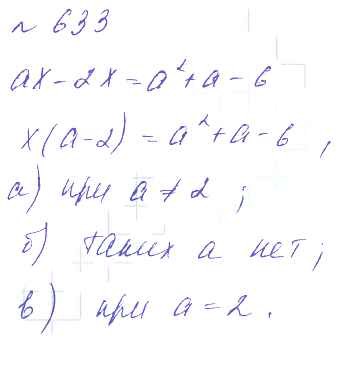 № 633
ax - 2x = a² + a - 6
x(a-2) = a² + a - 6,
а) при a ≠ 2;
б) таких a нет;
в) при a = 2.